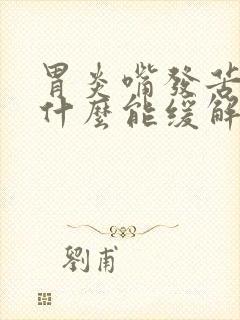 胃炎嘴發苦
什麼能緩解
劉甫